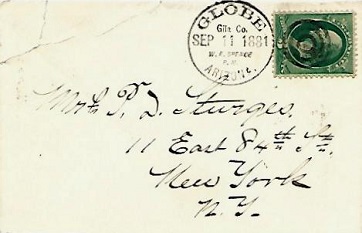 GLOBE
Gila Co.
SEP 11 1881
P. M.
ARIZONA.
Mrs. P. D. Sturges.
11 East 84th St.
New York
N.Y.